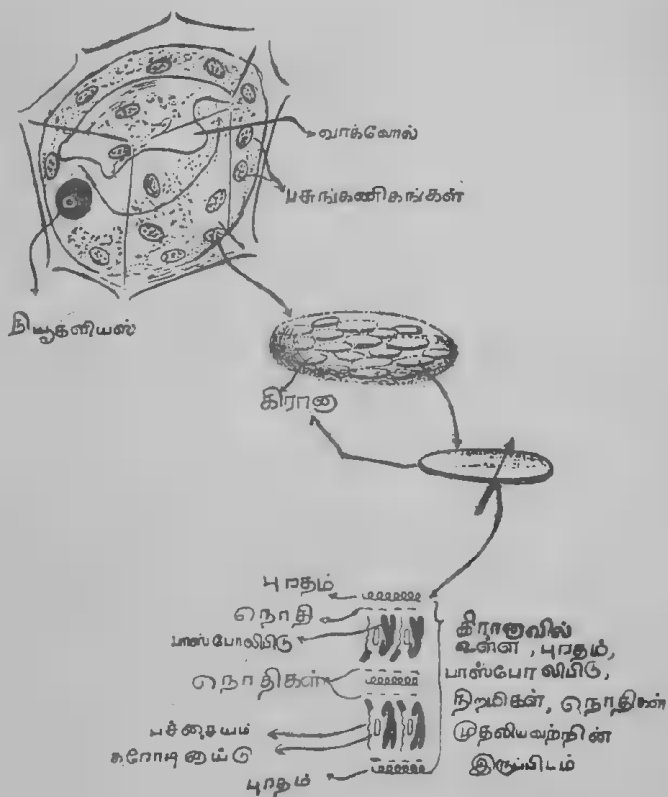 வாக்வோல்
பசுங்கணிகங்கள்
நியூக்ளியஸ்
கிரானு
புரதம்
நொதி
பாஸ்போலிபிடு
நொதிகள்
பச்சையம்
கரோடினாய்டு
புரதம்
கிரானுவில்
உள்ள, புரதம்,
பாஸ்போ லிபிடு,
நிறமிகள், நொதிகள்
முதலியவற்றின்
இருப்பிடம்